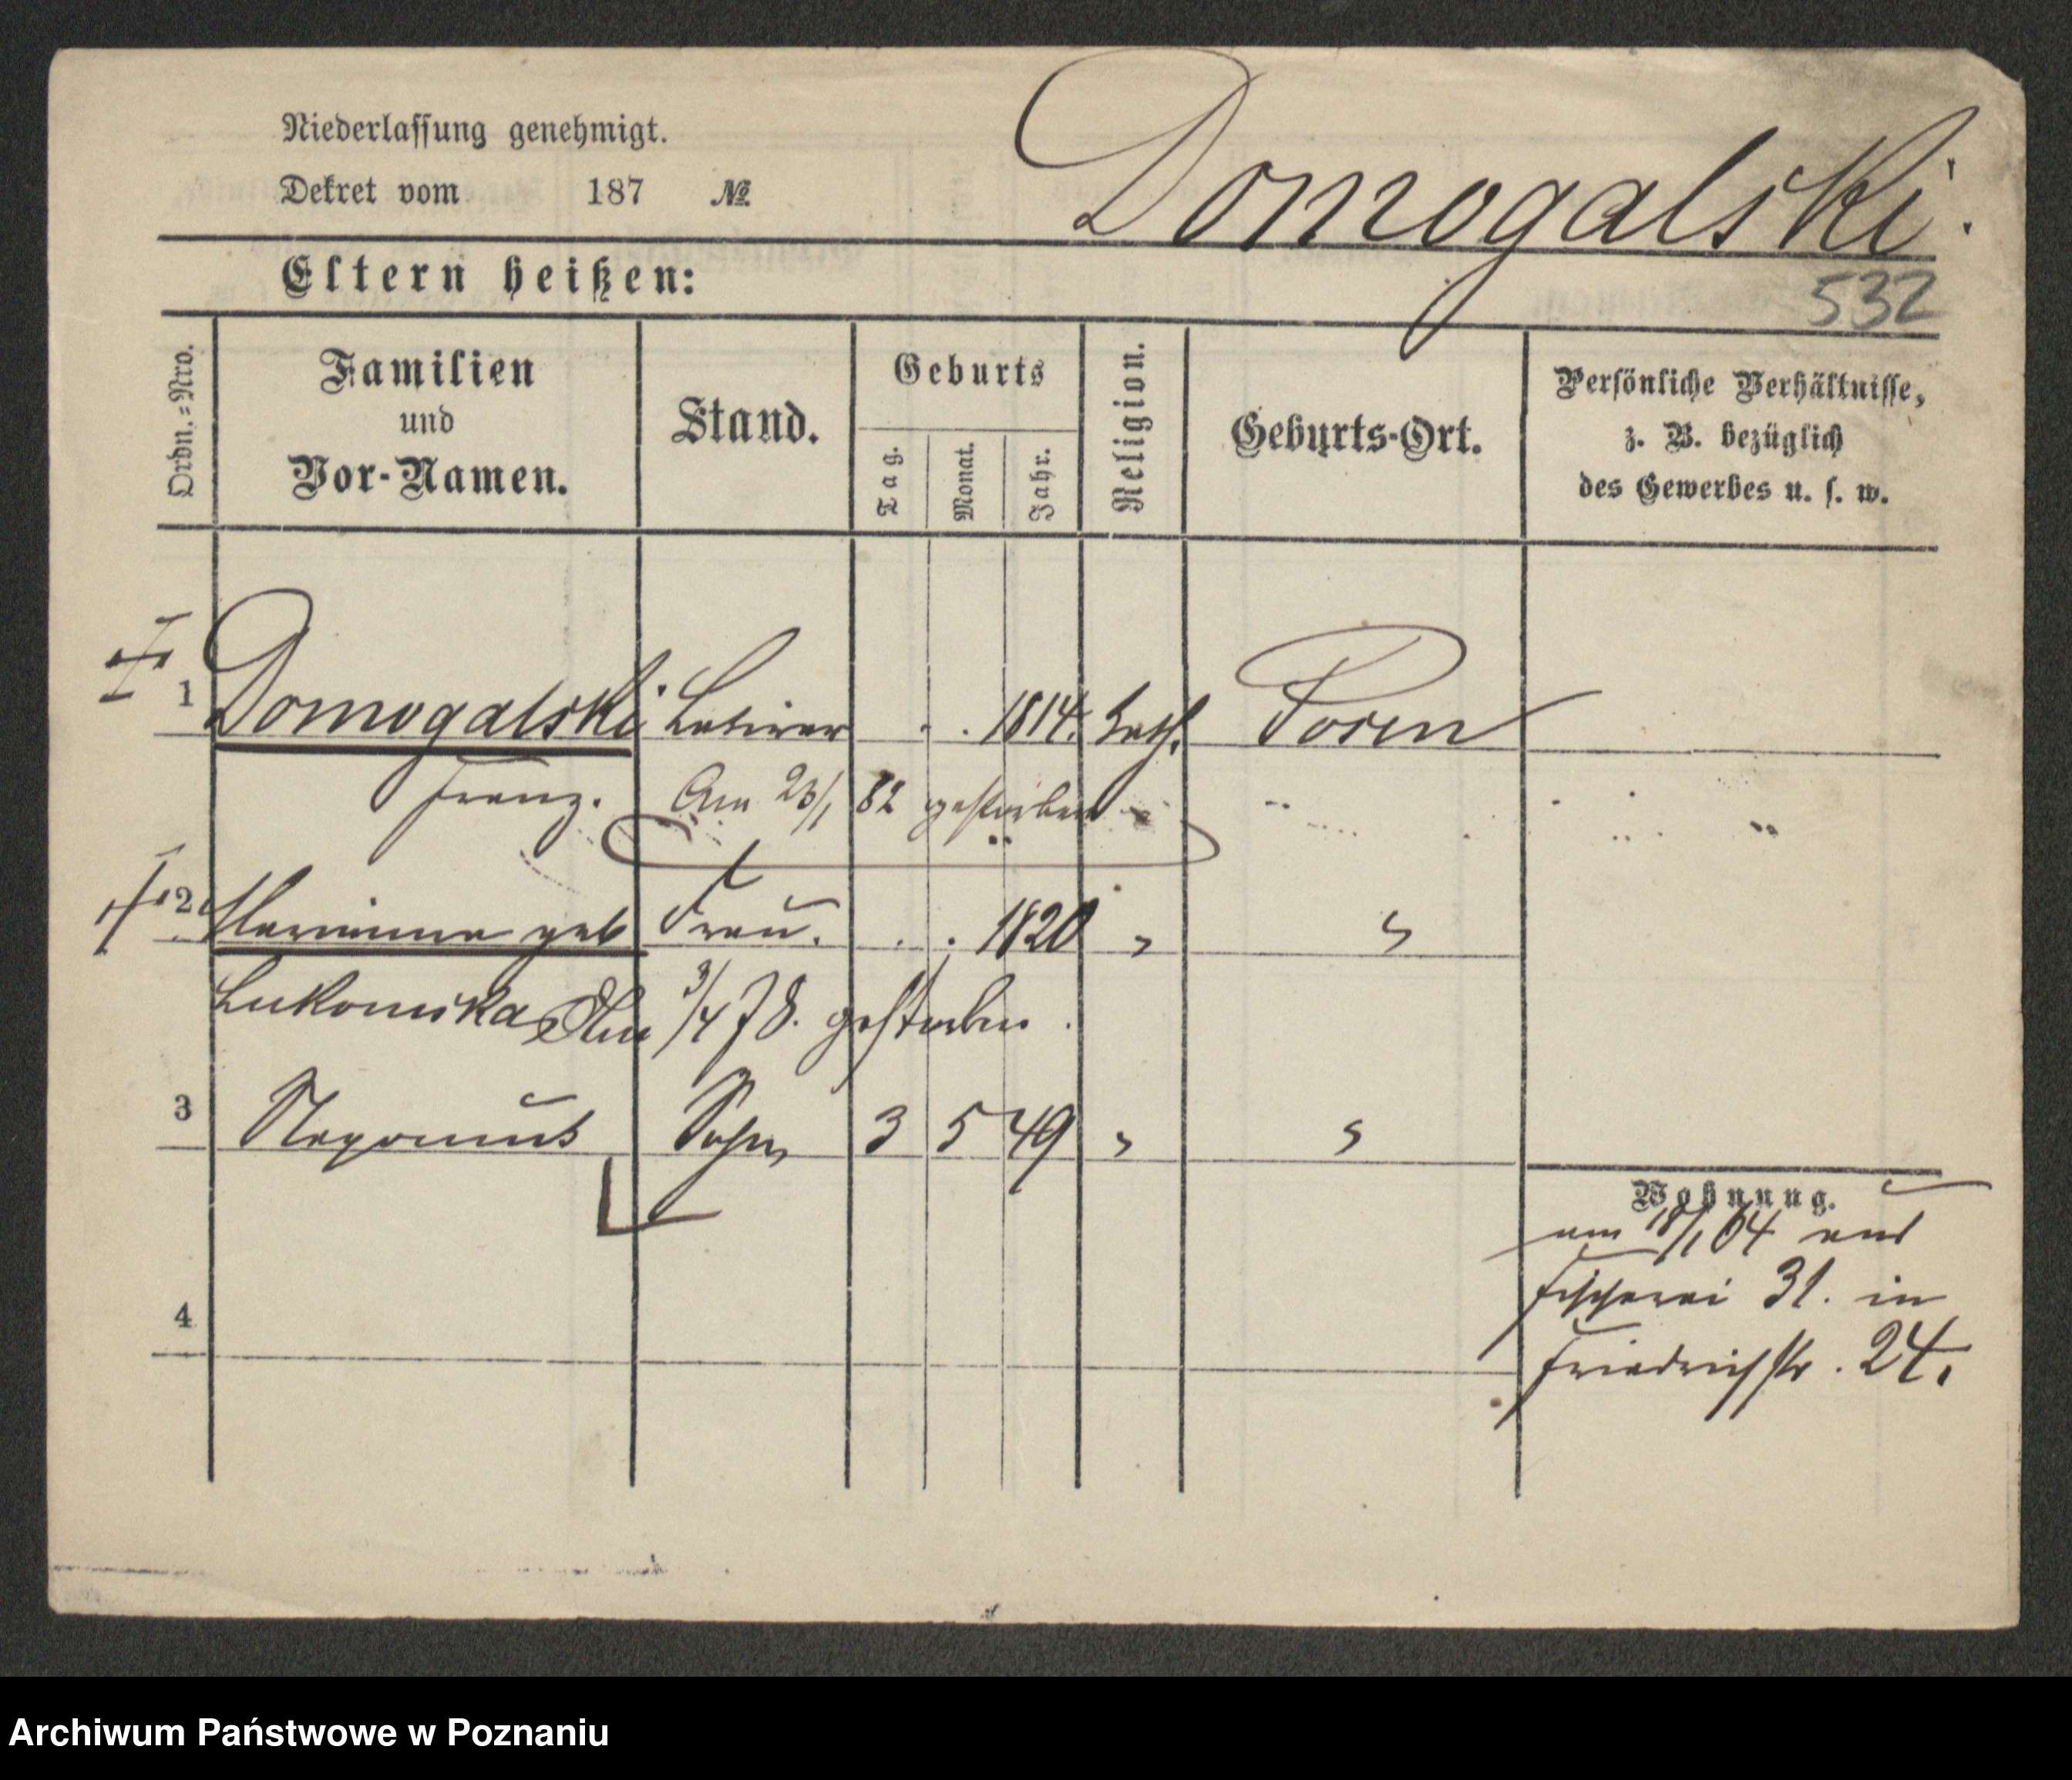 Niederlassung genehmigt.
Dekret vom 187 №
Domogalski.
Eltern heißen:
532
Ordn.=Nro.
Familien
und
Vor-Namen.
Stand.
Geburts
Tag.
Monat.
Jahr.
Religion.
Geburts-Ort.
Persönliche Verhältnisse,
z. B. bezüglich
des Gewerbes u. s. w.
1 Domogalski 1814. kath. Posen
Franz. Am 23/1 82 gestorben
2 Marianna geb Frau. 1820 "  "
Lukomska Am 3/4 78. gestorben.
3 Nepomuk Sohn 3 5 49 " "
Wohnung.
am 18/1 64 aus
Fischerei 31. in
Friedrichstr. 24.
4
Archiwum Państwowe w Poznaniu